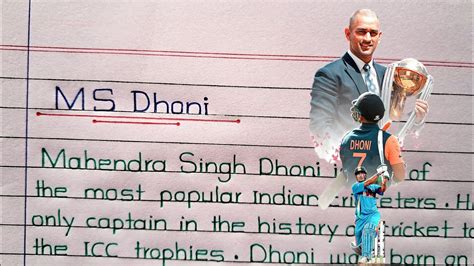 MS Dhoni
Mahendra Singh Dhoni i of
the most popular Indian cricketers. H
only captain in the history o cricket to
the ICC trophies. Dhoni wa born on
DHONI
7